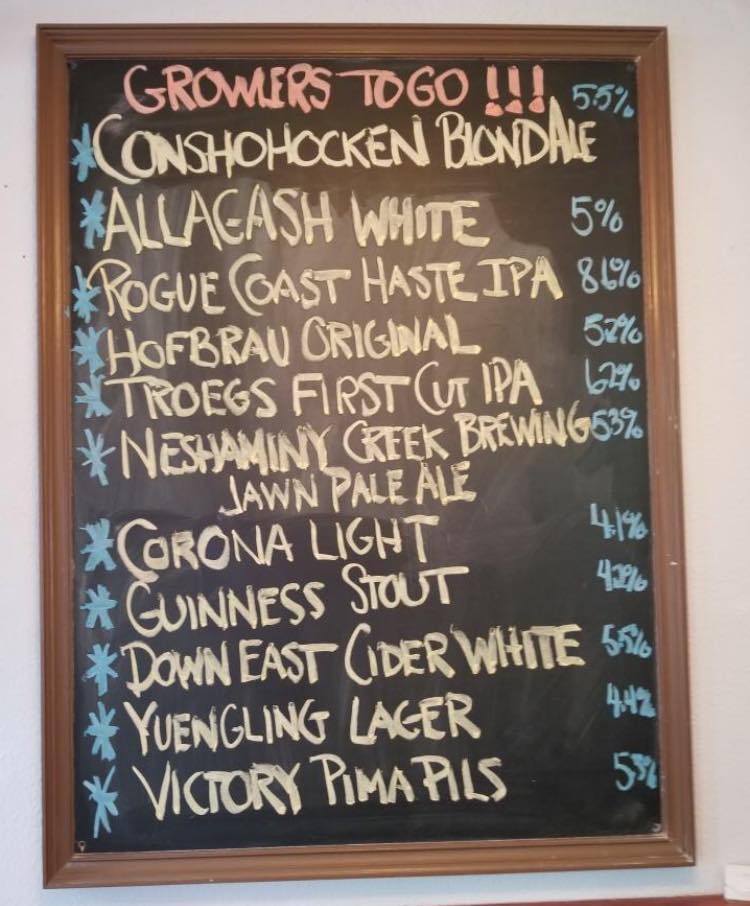 GROWLERS TO GO !!!
CONSHOHOCKEN BLOND ALE 5.5%
ALLAGASH WHITE 5%
ROGUE COAST HASTE IPA 8.6%
HOFBRAU ORIGINAL 5.2%
TROEGS FIRST CUT IPA 6.2%
NESHAMINY CREEK BREWING 5.3%
JAWN PALE ALE
CORONA LIGHT 4.1%
GUINNESS STOUT 4.2%
DOWN EAST CIDER WHITE 5.5%
YUENGLING LAGER 4.4%
VICTORY PIMA PILS 5.3%